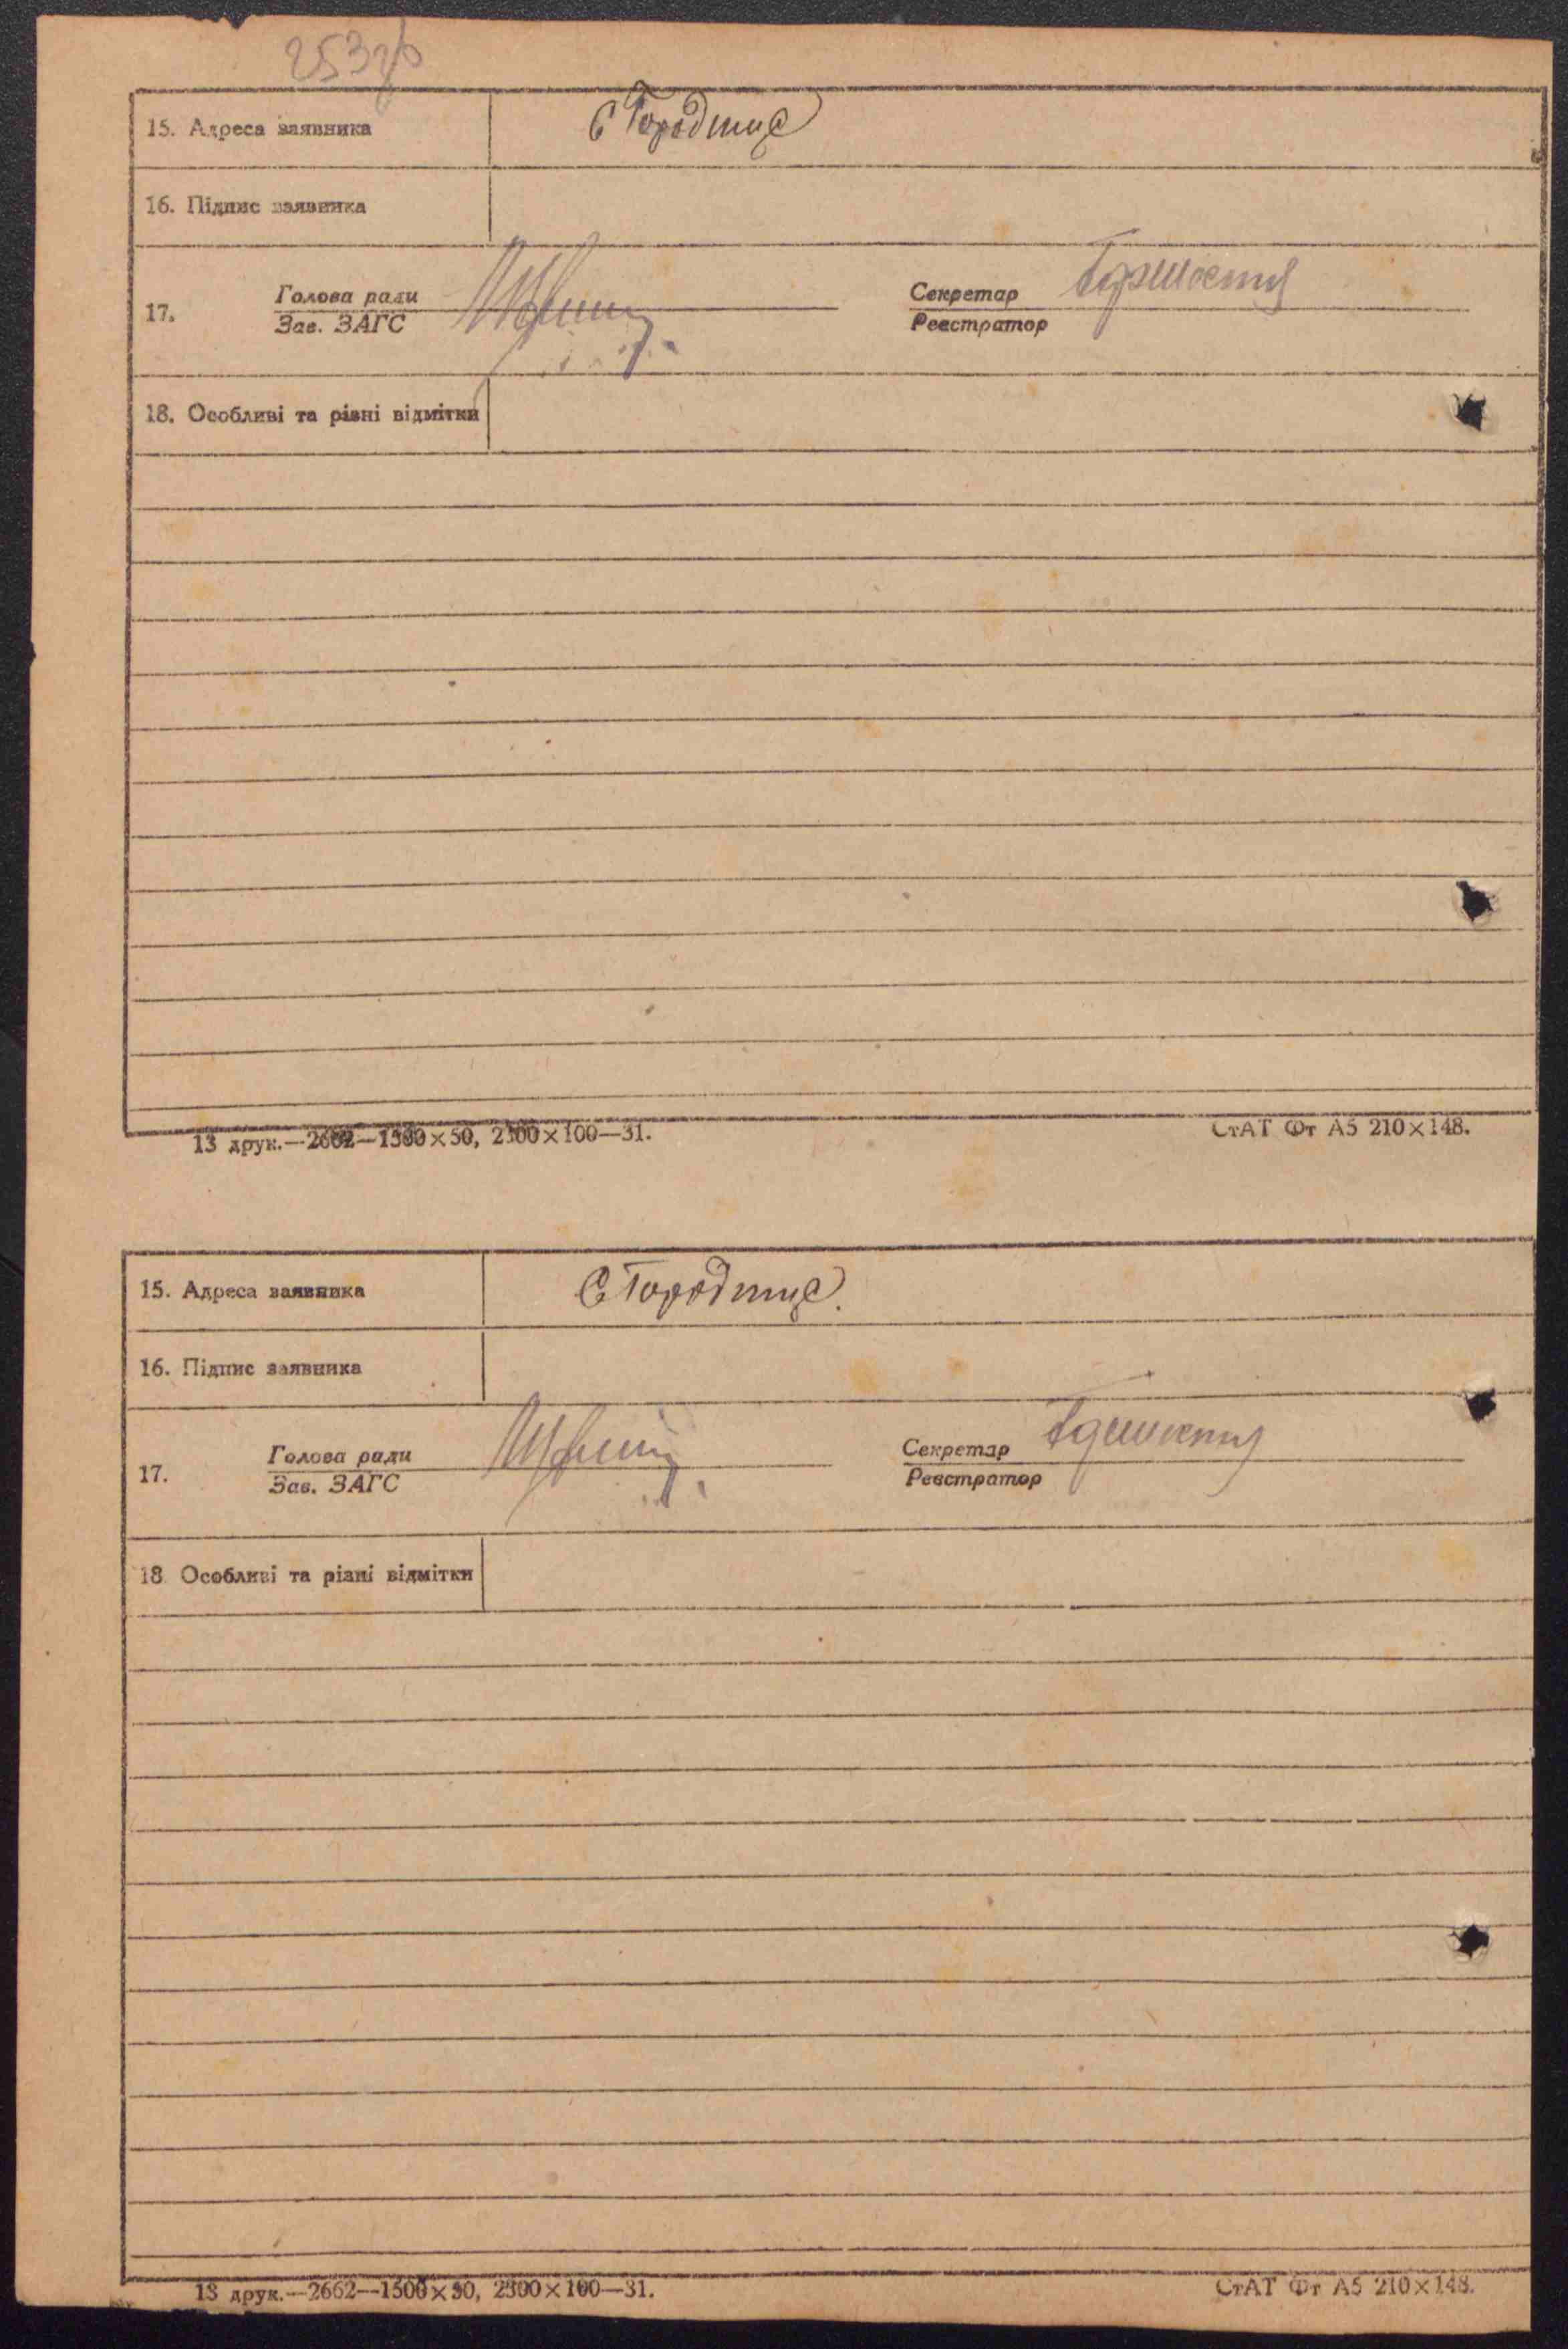 253
15. Адреса заявника
с Городище
16. Підпис заявника
17. Голова ради
Зав. ЗАГС
Секретар
Реєстратор
18. Особливі та різні відмітки
13 друк.—2662—1500×50, 2300×100—31. СтАТ Фт А5 210×148.
15. Адреса заявника
с Городище.
16. Підпис заявника
17. Голова ради
Зав. ЗАГС
Секретар
Реєстратор
18 Особливі та різні відмітки
13 друк.—2662—1500×50, 2300×100—31. СтАТ Фт А5 210×148.